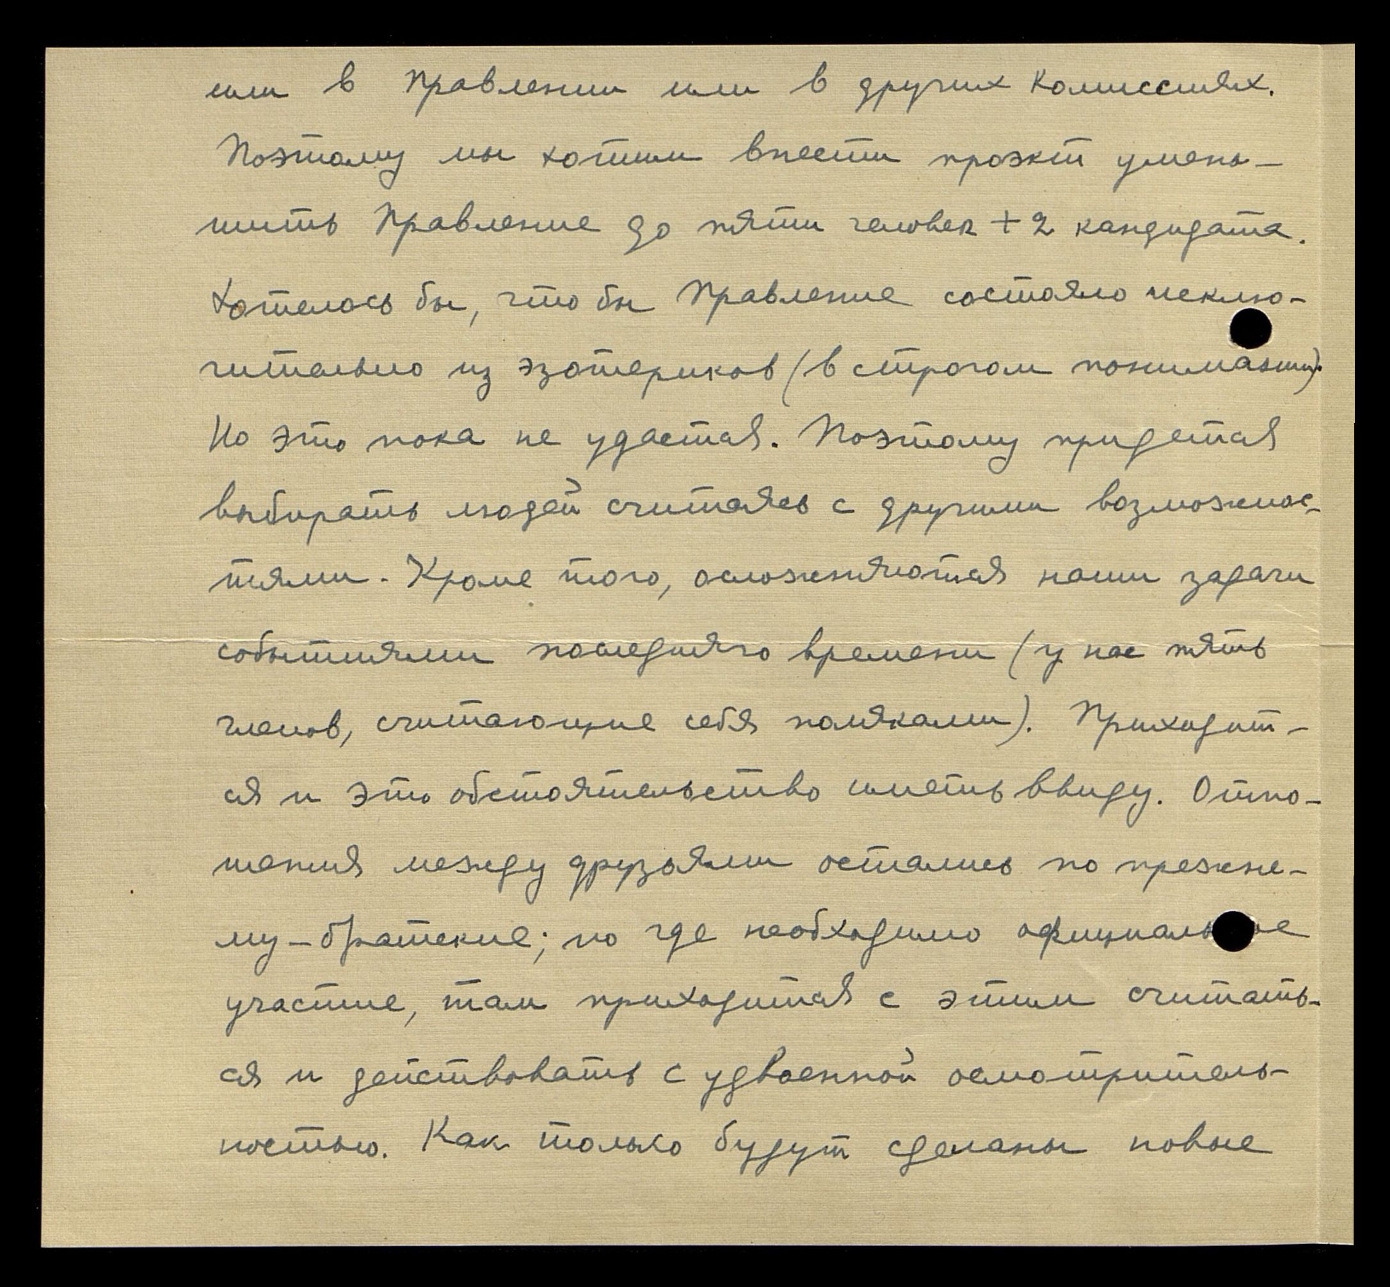 или в Правлении или в других Комиссиях.
Поэтому мы хотим внести проэкт умень-
шить Правление до пяти человек + 2 кандидата.
Хотелось бы, что бы Правление состояло исклю-
чительно из эзотериков (в строгом понимании).
Но это пока не удастся. Поэтому придется
выбирать людей считаясь с другими возможнос-
тями. Кроме того, осложняются наши задачи
событиями последняго времени (у нас пять
членов, считающие себя поляками). Приходит-
ся и это обстоятельство иметь ввиду. Отно-
шения между друзьями остались по прежне-
му - братские; но где необходимо официальное
участие, там приходится с этим считать-
ся и действовать с удвоенной осмотритель-
ностью. Как только будут сделаны новые